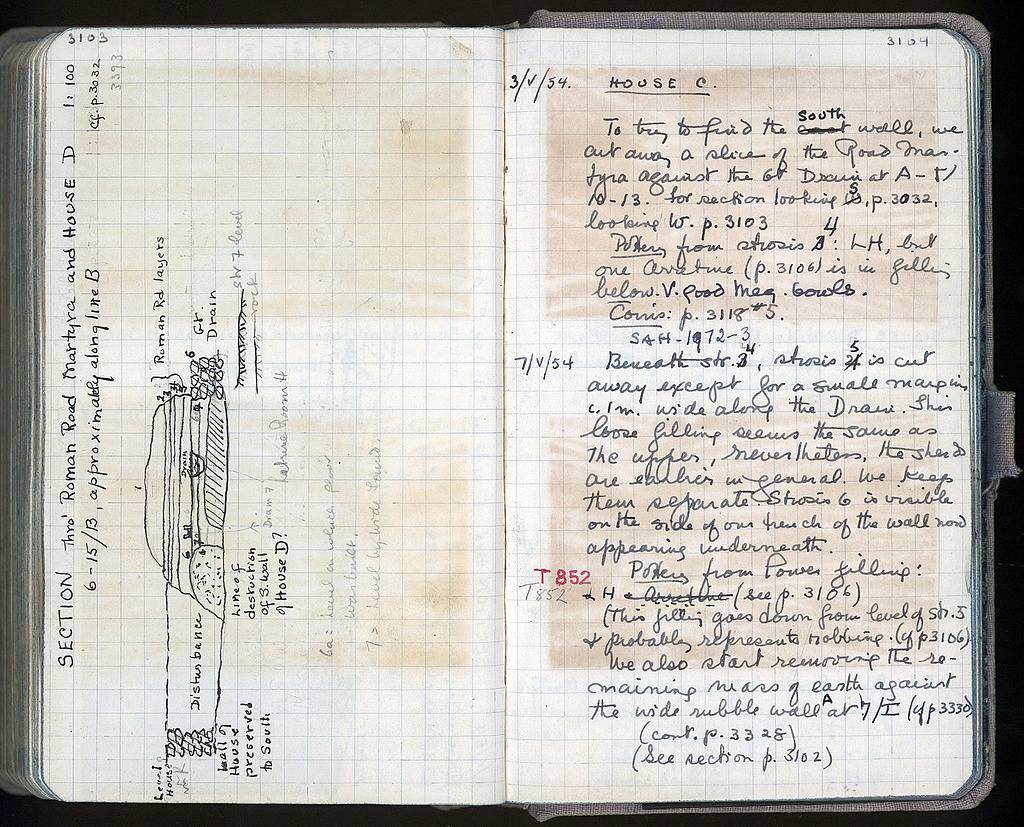 3103
SECTION Thro' Roman Road Martyra and HOUSE D 1:100
6-15/B, approximately along line B
cf. p. 3032
3393
Roman Rd layers
Gr.
Drain
Drain
str 7 level
rock
Disturbance
Line of
destruction
of S. wall
of House D?
Drain 7
Latrine Room H
6a = level on which floor
was built.
7 = level
Level
House
Wall of
House
preserved
to South
3104
3/V/54. HOUSE C.
South
To try to find the east wall, we
cut away a slice of the Road Mar-
tyra against the Gt Drain at A-
A-13. For section looking S, p. 3032,
looking W. p. 3103
Pottery from strosis 4: LH, but
one Arretine (p. 3106) is in filling
below. V. good Meg. bowls.
Coins: p. 3118 #5.
SAH-1972-3
7/V/54 Beneath str. 4, strosis 5 is cut
away except for a small margin
c. 1 m. wide along the Drain. This
loose filling seems the same as
the upper, nevertheless, the sherds
are earlier in general. We keep
them separate. Strosis 6 is visible
on the side of our trench of the wall now
appearing underneath.
T852 Pottery from lower filling:
T852 + H + Arretine (see p. 3106)
(This filling goes down from level of str. 5
& probably represents robbing. (cf p 3106)
We also start removing the re-
maining mass of earth against
the wide rubble wall A at 7/I (cf p 3330)
(cont. p. 3328)
(See section p. 3102)